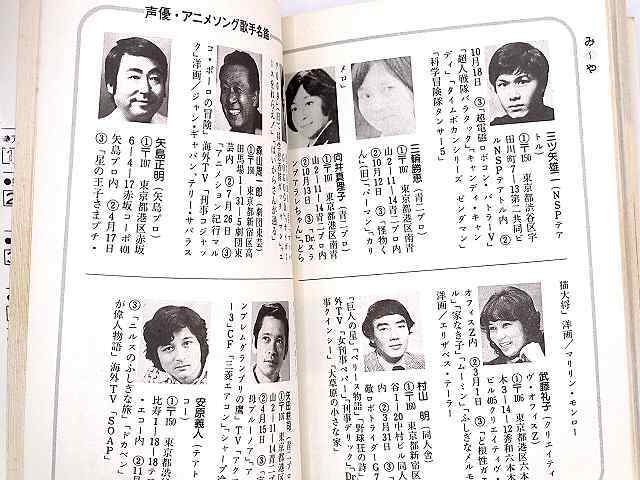 み〜や
三ツ矢雄二(NSPテア
トル)
①〒150 東京都渋谷区宇
田川町7-13第二共同ビ
ルNSPテアトル内 ②
10月18日 ③「超電磁ロボコン・バトラーV」
「超人戦隊バラタック」「キャンディ・キャン
ディ」「タイムボカンシリーズ ゼンダマン」
「科学冒険隊タンサー5」
三輪勝恵(青二プロ)
①〒107 東京都港区南青
山2-11-14青二プロ内
②10月12日 ③「怪物く
ん」(旧)「パーマン」「カリ
メロ」
向井真理子(青二プロ)
①〒107 東京都港区南青
山2-11-14青二プロ内
②10月13日 ③「Dr.スラ
ンプアラレちゃん」「どら
猫大将」 洋画/マリリン・モンロー
武藤礼子(クリエイティ
ヴ・オフィスZ)
①〒106 東京都港区六本
木3-14-12秀和六本木
ビル405クリエイティヴ・
オフィスZ内 ②3月1日 ③「ど根性ガエ
ル」「家なき子」「ムーミン」「ふしぎなメルモ」
洋画/エリザベス・テーラー
村山 明(同人舎)
①〒160 東京都新宿区四
谷1-20中村ビル同人
②3月31日 ③「
敵ロボトライダーG7
「巨人の星」「ペリーヌ物語」「野球狂の詩」
外TV「女刑事ペパー」「刑事デリック」
事クインシー」「大草原の小さな家」
声優・アニメソング歌手名鑑
森山周一郎(劇団東芸)
①〒160 東京都新宿区高
田馬場1-31-5劇団東
芸内 ②7月26日 ③
「アニメーション紀行マル
コ・ポーロの冒険」 海外TV「刑事コジャッ
ク」 洋画/ジャン・ギャバン、テリー・サバラス
矢島正明(矢島プロ)
①〒107 東京都港区赤坂
6-4-17赤坂コーポ401
矢島プロ内 ②4月17日
③「星の王子さまプチ・
②4月15日
ンブレムグランプリの鷹」 TV「アク
13」 CF「三菱エアコン」「シャープ
安原義人(テアト
コー)
①〒150 東京都渋
比寿1-18-18テ
・エコー内 ②11
③「ニルスのふしぎな旅」「ドカベン」
が偉人物語」 海外TV「SOAP」